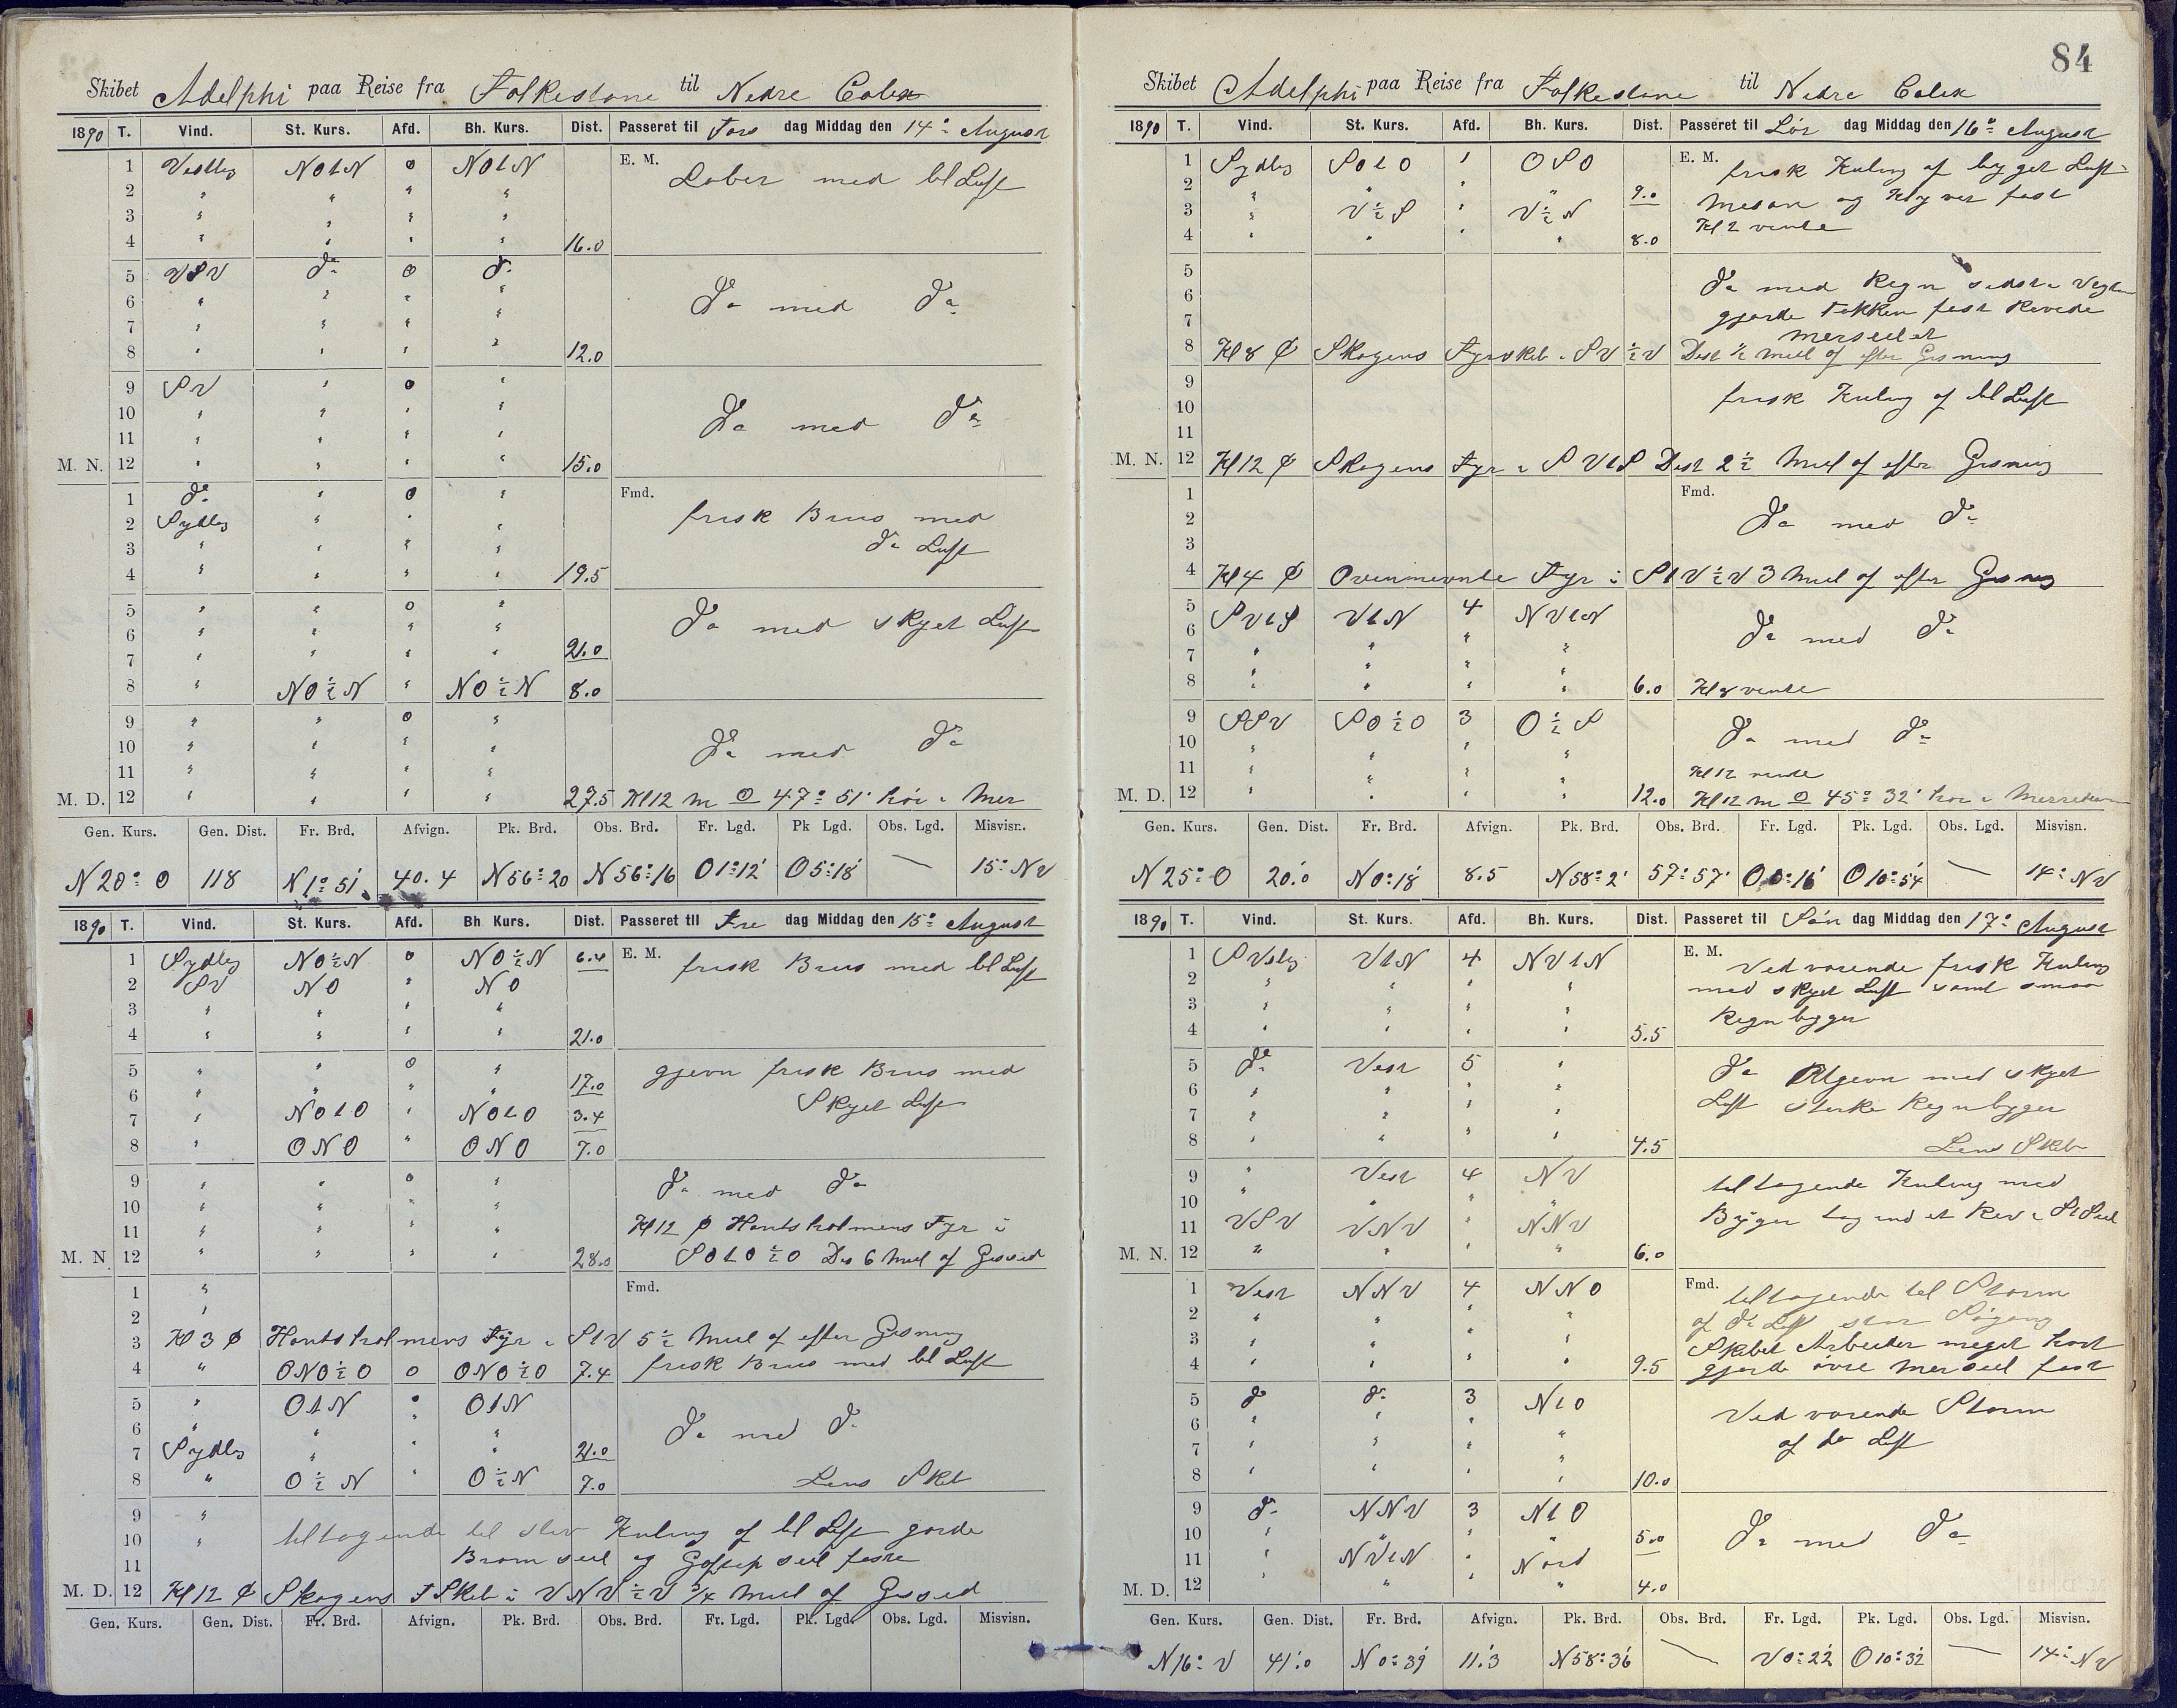 84
Skibet Adelphi paa Reise fra Folkestone til Nedre Calix
1890 T. Vind. St. Kurs. Afd. Bh. Kurs. Dist. Passeret til Tors dag Middag den 14de August
1 Vestlig NOtN 0 NOtN E. M.
Laber med kl Luft
2 " " " "
3 " " " "
4 " " " " 16.0
5 VSV do 0 do
6 " " " " do med do
7 " " " "
8 " " " " 12.0
9 SV " 0 "
10 " " " " do med do
11 " " " "
M. N. 12 " " " " 15.0
1 do " 0 " Fmd.
2 Sydlig " " " frisk Bris med
3 " " " " do Luft
4 " " " " 19.5
5 " " 0 "
6 " " " " do med skyet Luft
7 " " " " 21.0
8 " NO½N " NO½N 8.0
9 " " 0 "
10 " " " " do med do
11 " " " "
M. D. 12 " " " " 27.5 Kl 12 m ⊙ 47° 51' hoi i Mer
Gen. Kurs. Gen. Dist. Fr. Brd. Afvign. Pk. Brd. Obs. Brd. Fr. Lgd. Pk Lgd. Obs. Lgd. Misvisn.
N 20° O 118 N 1° 51' 40.4 N 56° 20 N 56° 16 O 1° 12' O 5° 18' — 15° NV
1890 T. Vind. St. Kurs. Afd. Bh Kurs. Dist. Passeret til Fre dag Middag den 15de August
1 Sydlig NO½N 0 NO½N 6.4 E. M. frisk Bris med kl Luft
2 SV NO " NO
3 " " " "
4 " " " " 21.0
5 " " 0 " 17.0 gjevn frisk Bris med
6 " " " " Skyet Luft
7 " NOtO " NOtO 3.4
8 " ONO " ONO 7.0
9 " " 0 " do med do
10 " " " "
11 " " " " Kl 12 p Hantsholmens Fyr i
M. N 12 " " " " 28.0 SOtO½O Dis 6 Mul af Gissed
1 " Fmd.
2 "
3 Kl 3 p Hantsholmens Fyr i StV 5½ Mul af efter Gisning
4 " ONO½O 0 ONO½O 7.4 frisk Bris med kl Luft
5 " OtN 0 OtN
6 " " " " do med do
7 Sydlig " " " 21.0
8 " O½N " O½N 7.0 Lens Skib
9 "
10 " tiltagende til stiv Kuling af kl Luft gorde
11 Bramseil og Gaftop seil faste
M. D. 12 Kl 12 p Skagens FSkib i VNV½V ¾ Mul af Gissed
Gen. Kurs. Gen. Dist. Fr. Brd. Afvign. Pk. Brd. Obs. Brd. Fr. Lgd. Pk. Lgd. Obs. Lgd. Misvisn.
Skibet Adelphi paa Reise fra Folkestone til Nedre Calix
1890 T. Vind. St. Kurs. Afd. Bh. Kurs. Dist. Passeret til Lör dag Middag den 16de August
1 Sydlig SOtO 1 OSO E. M. frisk Kuling af byget Luft
2 " " " " 9.0 Mesan og Klyver fast
3 " V½S " V½N Kl 2 vente
4 " " " " 8.0
5 do med Regn sidste Vagten
6 gjorde Fokken fast Revede
7 Merseilet
8 Kl 8 p Skagens Fyrskib i SV½V Dist ½ Mul af efter Gisning
9 frisk Kuling af kl Luft
10
11
M. N. 12 Kl 12 p Skagens Fyr i SVtS Dist 2½ Mul af efter Gisning
1 Fmd.
2 do med do
3
4 Kl 4 p Ovennevnte Fyr i StV½V 3 Mul af efter Gisning
5 SVtS VtN 4 NVtN
6 " " " " do med do
7 " " " "
8 " " " " 6.0 Kl 8 vente
9 SSV SO½O 3 O½S
10 " " " " do med do
11 " " " " Kl 12 vente
M. D. 12 " " " " 12.0 Kl 12 m ⊙ 45° 32' hoi i Merredian
Gen. Kurs. Gen. Dist. Fr. Brd. Afvign. Pk. Brd. Obs. Brd. Fr. Lgd. Pk. Lgd. Obs. Lgd. Misvisn.
N 25° O 20.0 N 0° 18' 8.5 N 58° 2' 57° 57' O 0° 16' O 10° 54' — 14° NV
1890 T. Vind. St. Kurs. Afd. Bh. Kurs. Dist. Passeret til Sön dag Middag den 17de August
1 SVslig VtN 4 NVtN E. M. Ved varende frisk Kuling
2 " " " " med skyet Luft samt smaa
3 " " " " Regn bygger
4 " " " " 5.5
5 do Vest 5 " do Ulgevn med skyet
6 " " " " Luft sterke Regnbygger
7 " " " "
8 " " " " 4.5 Lens Skib
9 " Vest 4 NV tiltagende Kuling med
10 " " " "
11 VSV VNV " NNV Byger tog ind et Rev i StSeil
M. N. 12 " " " " 6.0
1 Vest NNV 4 NNO Fmd. tiltagende til Storm
2 " " " " af do Luft stor Söjang
3 " " " " Skibet Arbeider meget hart
4 " " " " 9.5 gjorde övre Merseil fast
5 do do 3 NtO
6 " " " " Ved varende Storm
7 " " " " af do Luft
8 " " " " 10.0
9 do NNV 3 NtO
10 " " " " 5.0 do med do
11 " NVtN " Nord
M. D. 12 " " " " 4.0
Gen. Kurs. Gen. Dist. Fr. Brd. Afvign. Pk. Brd. Obs. Brd. Fr. Lgd. Pk. Lgd. Obs. Lgd. Misvisn.
N 16° V 41.0 N 0° 39' 11.3 N 58° 36' — V 0° 22' O 10° 32' — 14° NV